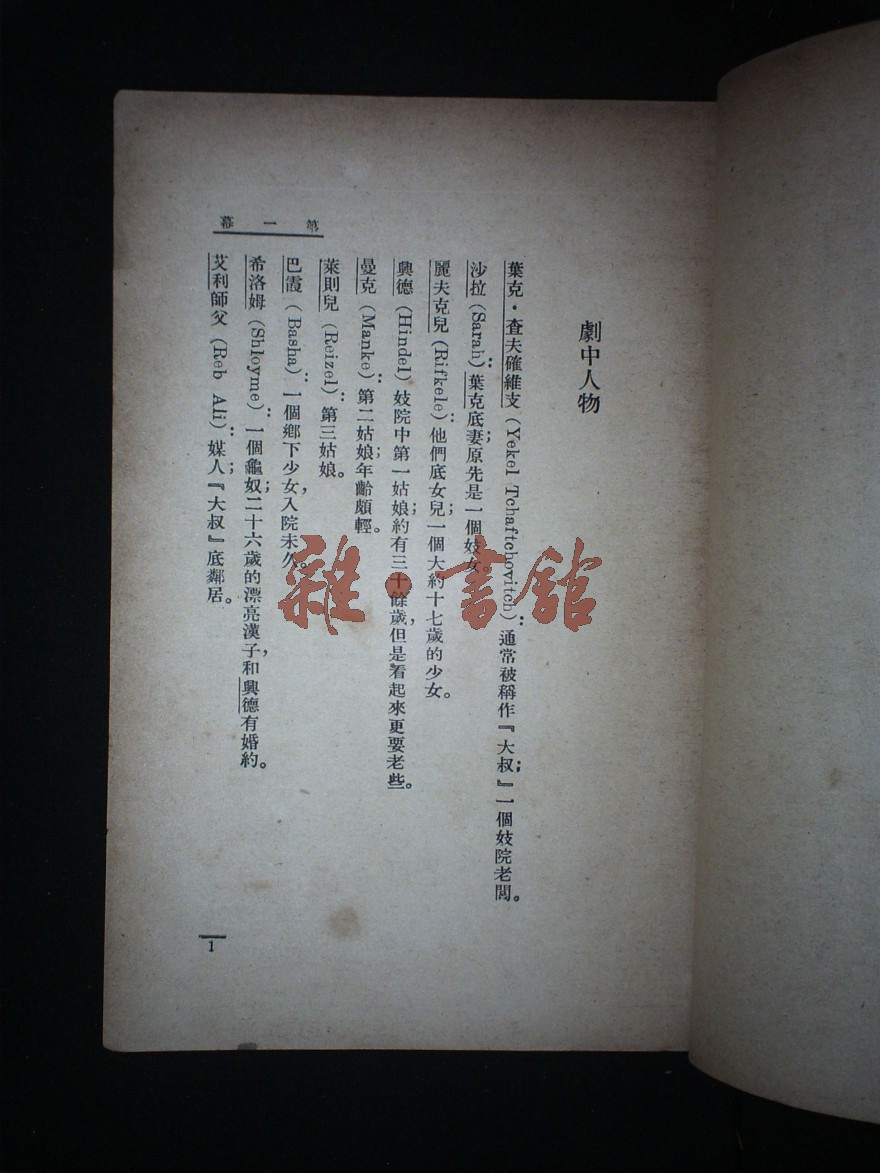 劇中人物
葉克·查夫確維支（Yekel Tchaftchovitch）：通常被稱作『大叔』；一個妓院老闆。
沙拉（Sarah）：葉克底妻；原先是一個妓女。
麗夫克兒（Rifkele）：他們底女兒；一個大約十七歲的少女。
興德（Hindel）妓院中第一姑娘；約有三十餘歲，但是看起來更要老些。
曼克（Manke）：第二姑娘；年齡頗輕。
萊則兒（Reizel）：第三姑娘。
巴霞（Basha）：一個鄉下少女，入院未久。
希洛姆（Shloyme）：一個龜奴；二十六歲的漂亮漢子，和興德有婚約。
艾利師父（Reb Ali）：媒人；『大叔』底鄰居。
第一幕
1
雜·書館